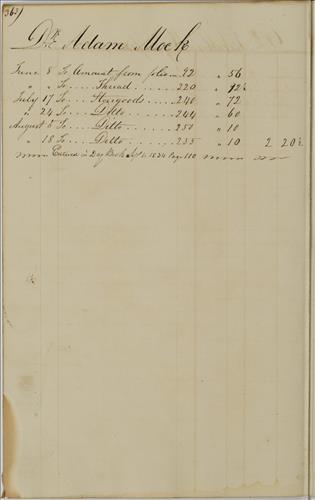 363)
Dr. Adam Mock
June 8 To Amount from folio 92 " 56
" " To .... Thread ...... 220 " 12½
July 17 To .... Storegoods .... 240 " 72
" 24 To .... Ditto ...... 244 " 60
August 5 To .... Ditto ...... 251 " 10
" 18 To .... Ditto ...... 255 " 10 2 20½
Entered in Day Book 1834 Page 110